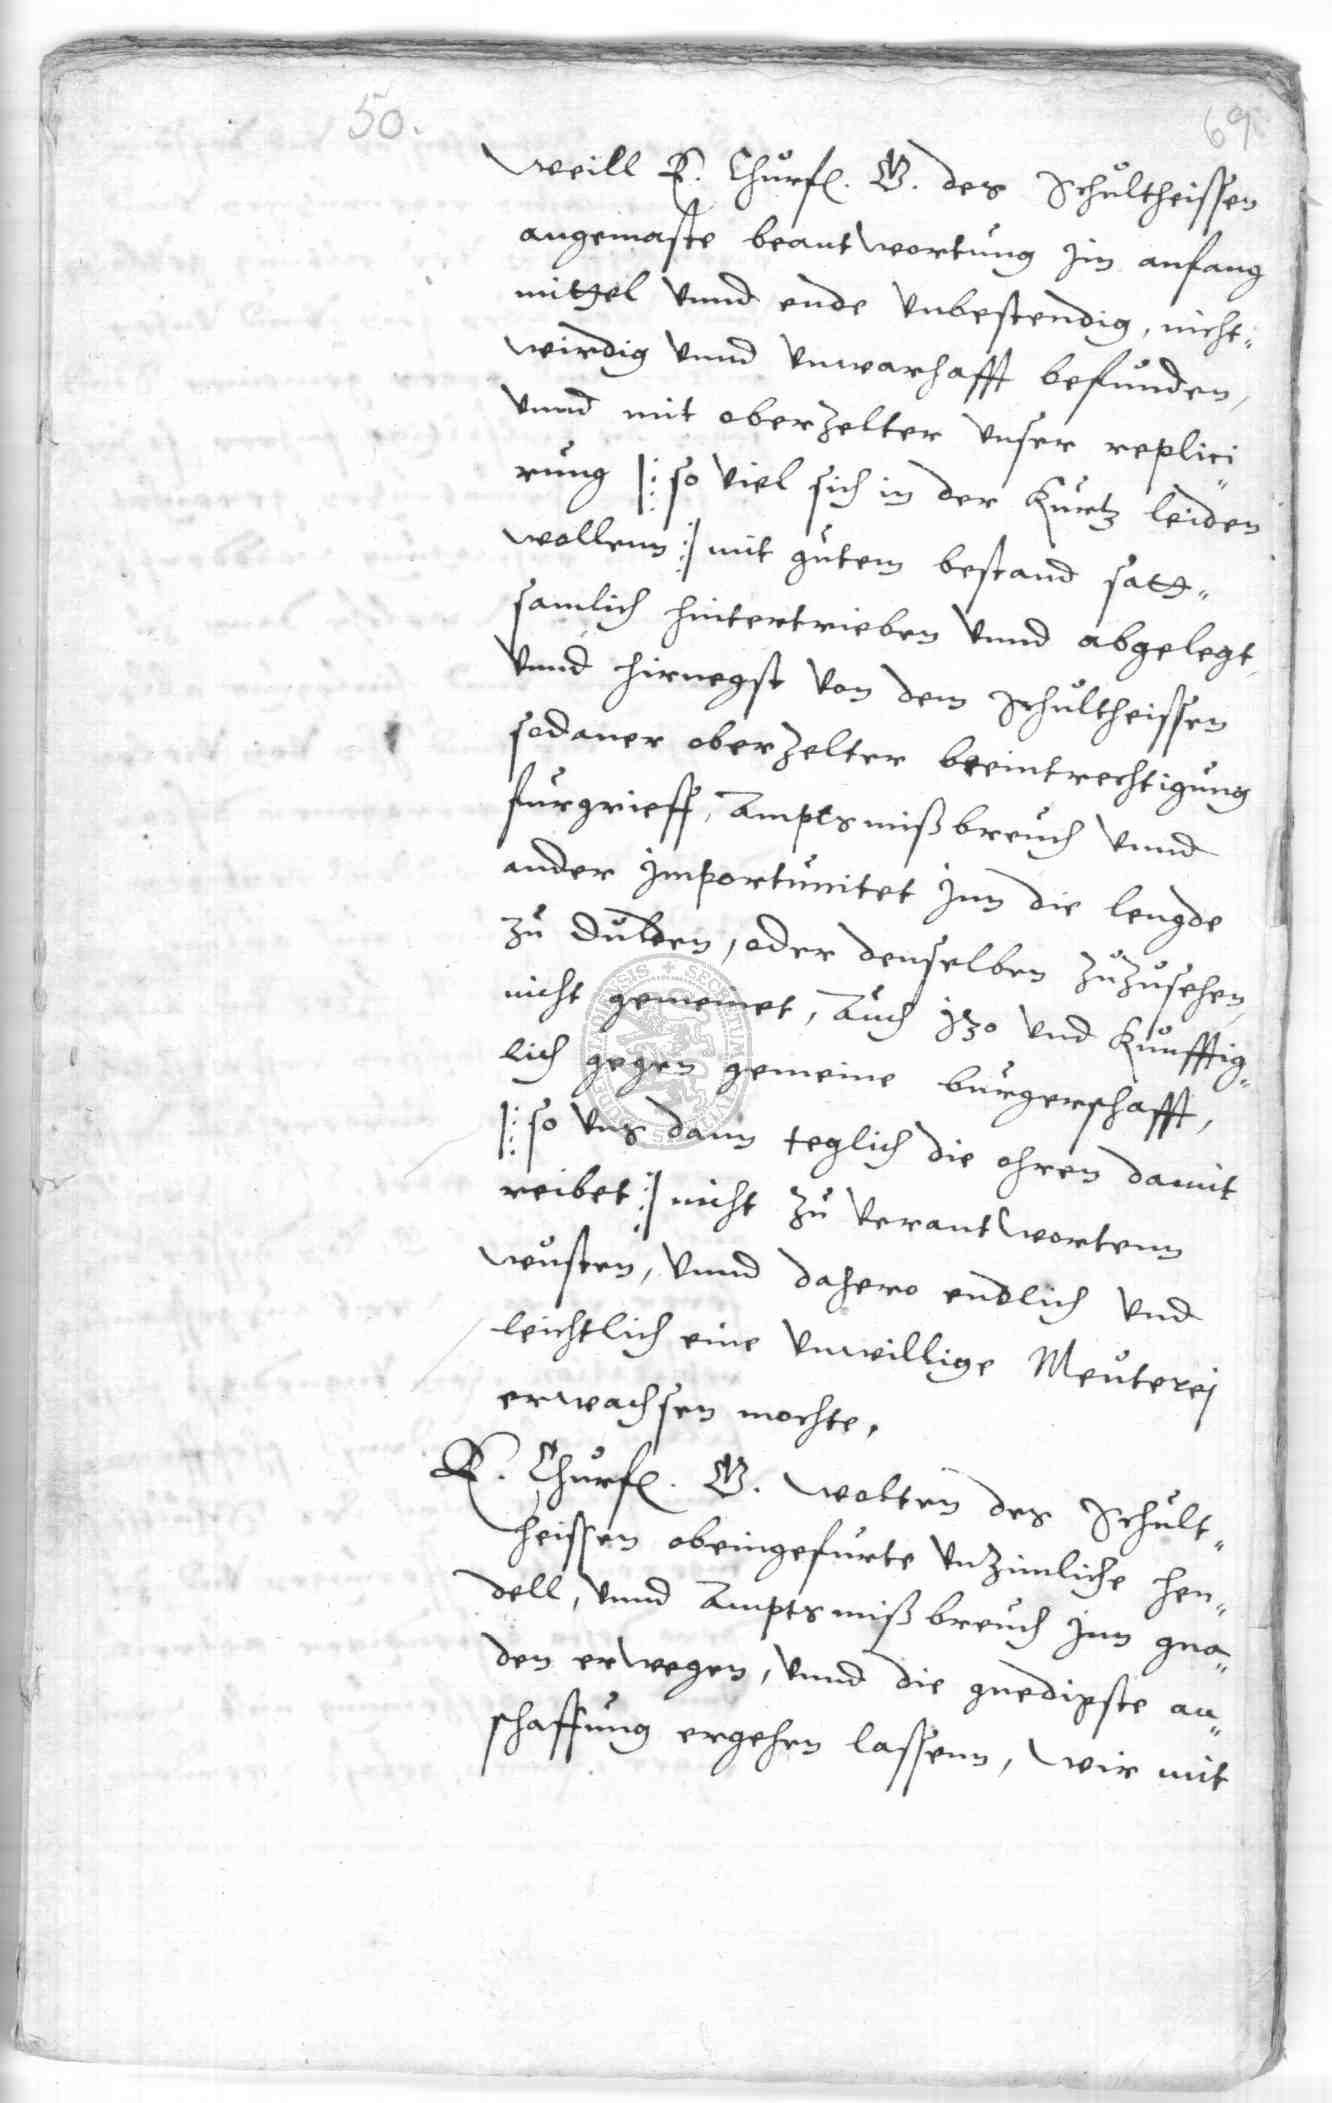 50.
69
Weill E. Churf. G. des Schultheissen
angemaste beantwortung Jm anfang
mittel Vnnd ende Vnbestendig, nicht„
wirdig Vnnd Vnwarhafft befunden,
Vnnd mit oberzelter Vnser replici„
rung |: so Viel sich in der Kurtz leiden
wollenn :| mit gutem bestand satt„
samlich hintertrieben Vnnd abgelegt,
Vnnd hirnegst Von dem Schultheissen
sodaner oberzelter beeintrechtigung
furgrieff, Amptsmißbreuch Vnnd
ander Jmportunitet Jnn die lengde
zu dulden, oder denselben zuzusehen,
nicht gemeinet, Auch jtzo Vnd Kunfftig„
lich gegen gemeine burgerschafft,
|: so Vns dann teglich die ohren damit
reibet :| nicht zu Verantwortenn
wusten, Vnnd dahero endlich Vnd
leichtlich eine Vnwillige Meuterej
erwachsen mochte,
E. Churf. G. wolten des Schult„
heissen obeingefurte Vnzimliche hen„
dell, Vnnd Amptsmißbreuch Jnn gna„
den erwegen, Vnnd die gnedigste an„
schaffung ergehen lassenn, wir mit